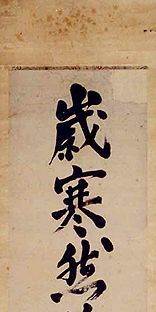 歲寒然